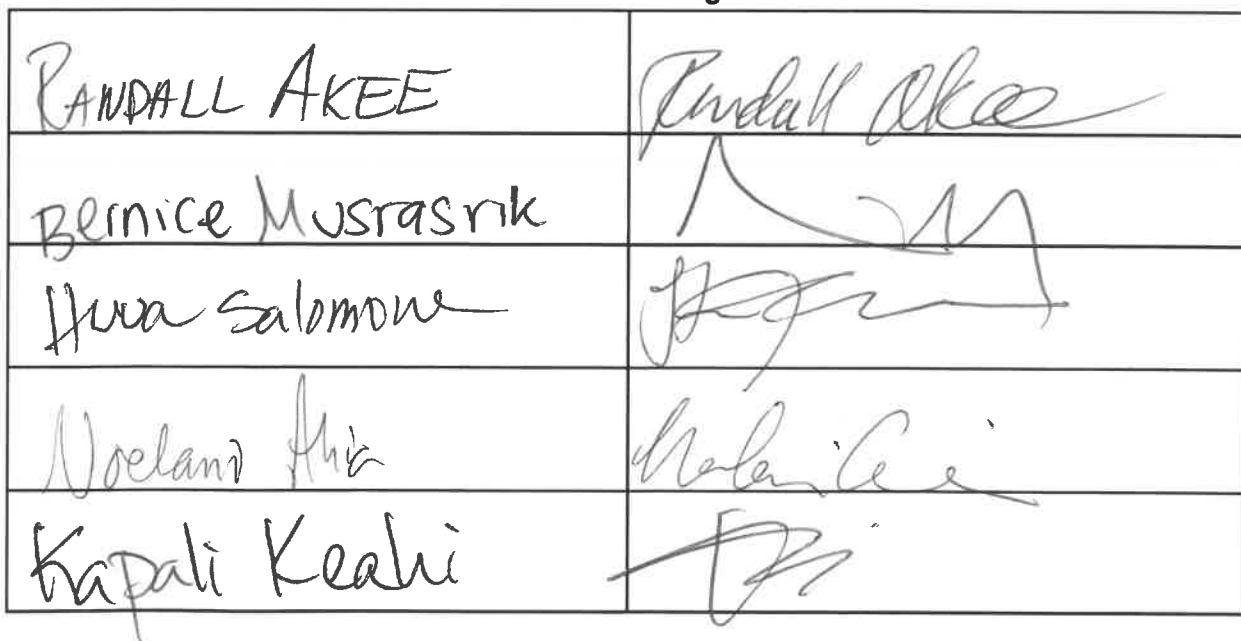 RANDALL AKEE Randall Akee
Bernice Musrasrik
Salomone
Noelani Ahia
Kapali Keahi